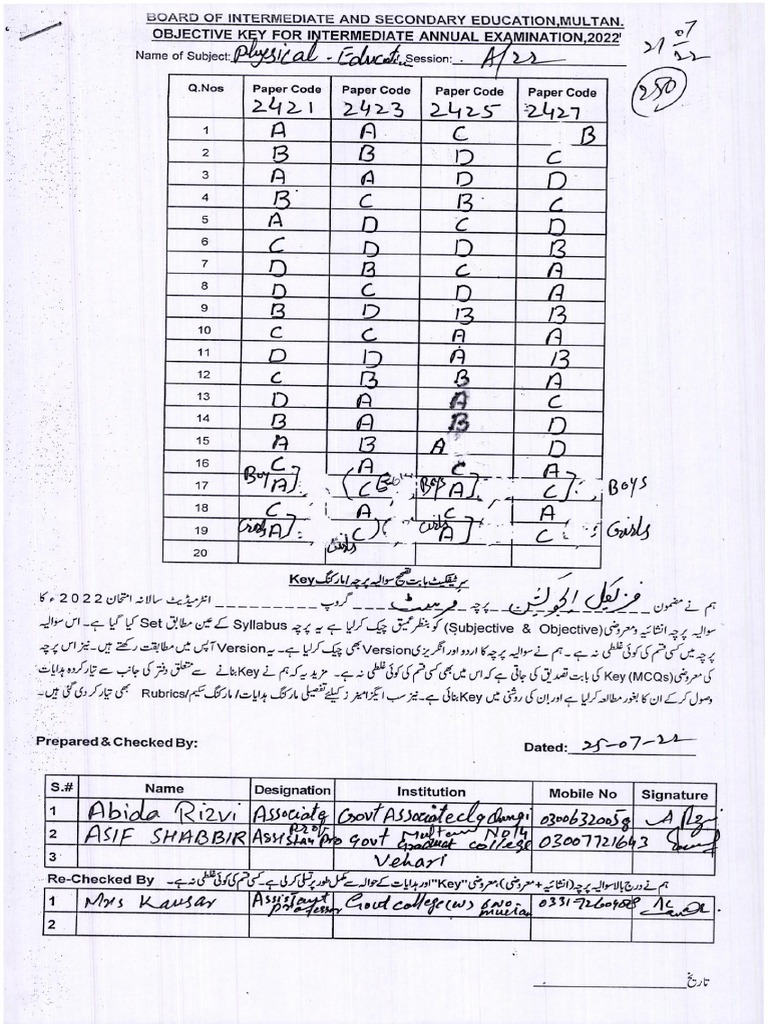 BOARD OF INTERMEDIATE AND SECONDARY EDUCATION,MULTAN.
OBJECTIVE KEY FOR INTERMEDIATE ANNUAL EXAMINATION,2022'
Name of Subject: Physical - Education Session: A/22
21/07/22
250
Q.Nos Paper Code 2421 Paper Code 2423 Paper Code 2425 Paper Code 2427
1 A A C B
2 B B D C
3 A A D D
4 B C B C
5 A D C D
6 C D D B
7 D B C A
8 D C D A
9 B D B B
10 C C A A
11 D D A B
12 C B B A
13 D A A C
14 B A B D
15 A B A D
16 C A C A
17 Boy A C Boys A C Boys
18 C A C A
19 Girls A C Girls A C Girls
Girls
20
سرٹیفکیٹ بابت تصحیح سوالیہ پرچہ/مارکنگ Key
ہم نے مضمون فزیکل ایجوکیشن پرچہ فرسٹ گروپ انٹرمیڈیٹ سالانہ امتحان 2022ء کا
سوالیہ پرچہ انشائیہ ومعروضی (Subjective & Objective) کو بنظر عمیق چیک کرلیا ہے یہ پرچہ Syllabus کے عین مطابق Set کیا گیا ہے۔ اس سوالیہ
پرچہ میں کسی قسم کی کوئی غلطی نہ ہے۔ ہم نے سوالیہ پرچہ کا اردو اور انگریزی Version بھی چیک کرلیا ہے۔ یہ Version آپس میں مطابقت رکھتے ہیں۔ نیز اس پرچہ
کی معروضی (MCQs) Key کی بابت تصدیق کی جاتی ہے کہ اس میں بھی کسی قسم کی کوئی غلطی نہ ہے۔ مزید یہ کہ ہم نے Key بنانے سے متعلق دفتر کی جانب سے تیار کردہ ہدایات
وصول کرکے ان کا بغور مطالعہ کرلیا ہے اور ان کی روشنی میں Key بنائی ہے۔ نیز سب ایگزامینرز کیلئے تفصیلی مارکنگ ہدایات/مارکنگ سکیم/Rubrics بھی تیار کردی گئی ہیں۔
Prepared & Checked By: Dated: 25-07-22
S.# Name Designation Institution Mobile No Signature
1 Abida Rizvi Associate Prof Govt Associate clg Chungi No 14 Multan 03006320058
2 ASIF SHABBIR Assistant Pro Govt Graduate college Vehari 03007721643
3
Re-Checked By ہم نے درج بالا سوالیہ پرچہ (انشائیہ + معروضی)، معروضی "Key" اور ہدایات کے حوالہ سے مکمل طور پر تسلی کرلی ہے۔ کسی قسم کی کوئی غلطی نہ ہے۔
1 Mrs Kausar Assistant Professor Govt college (w) Multan
2
تاریخ